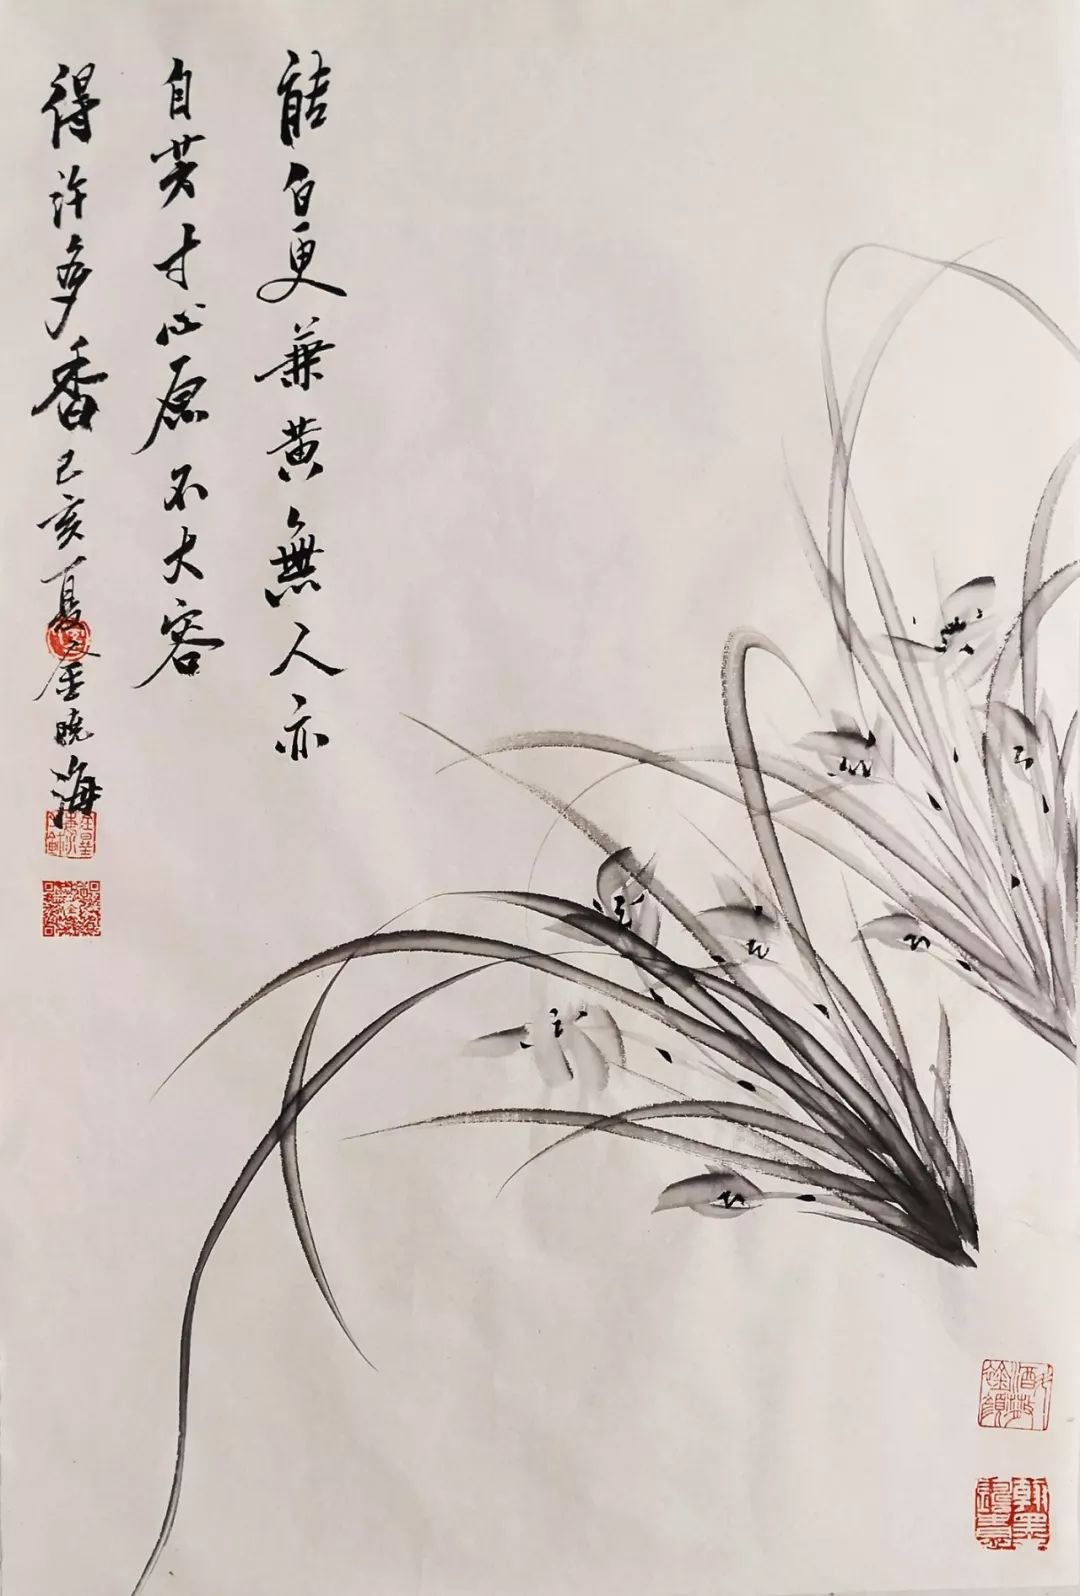 能白更兼黄無人亦
自芳寸心原不大容
得许多香己亥夏金晓海